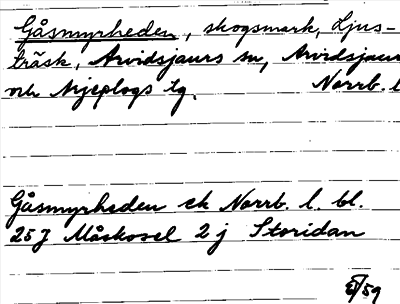 Gåsmyrheden, skogsmark, Ljus-
träsk, Arvidsjaurs sn, Arvidsjaurs
och Arjeplogs tg. Norrb. l
Gåsmyrheden ek Norrb. l. bl.
25J Måskosel 2 j Storidan
59